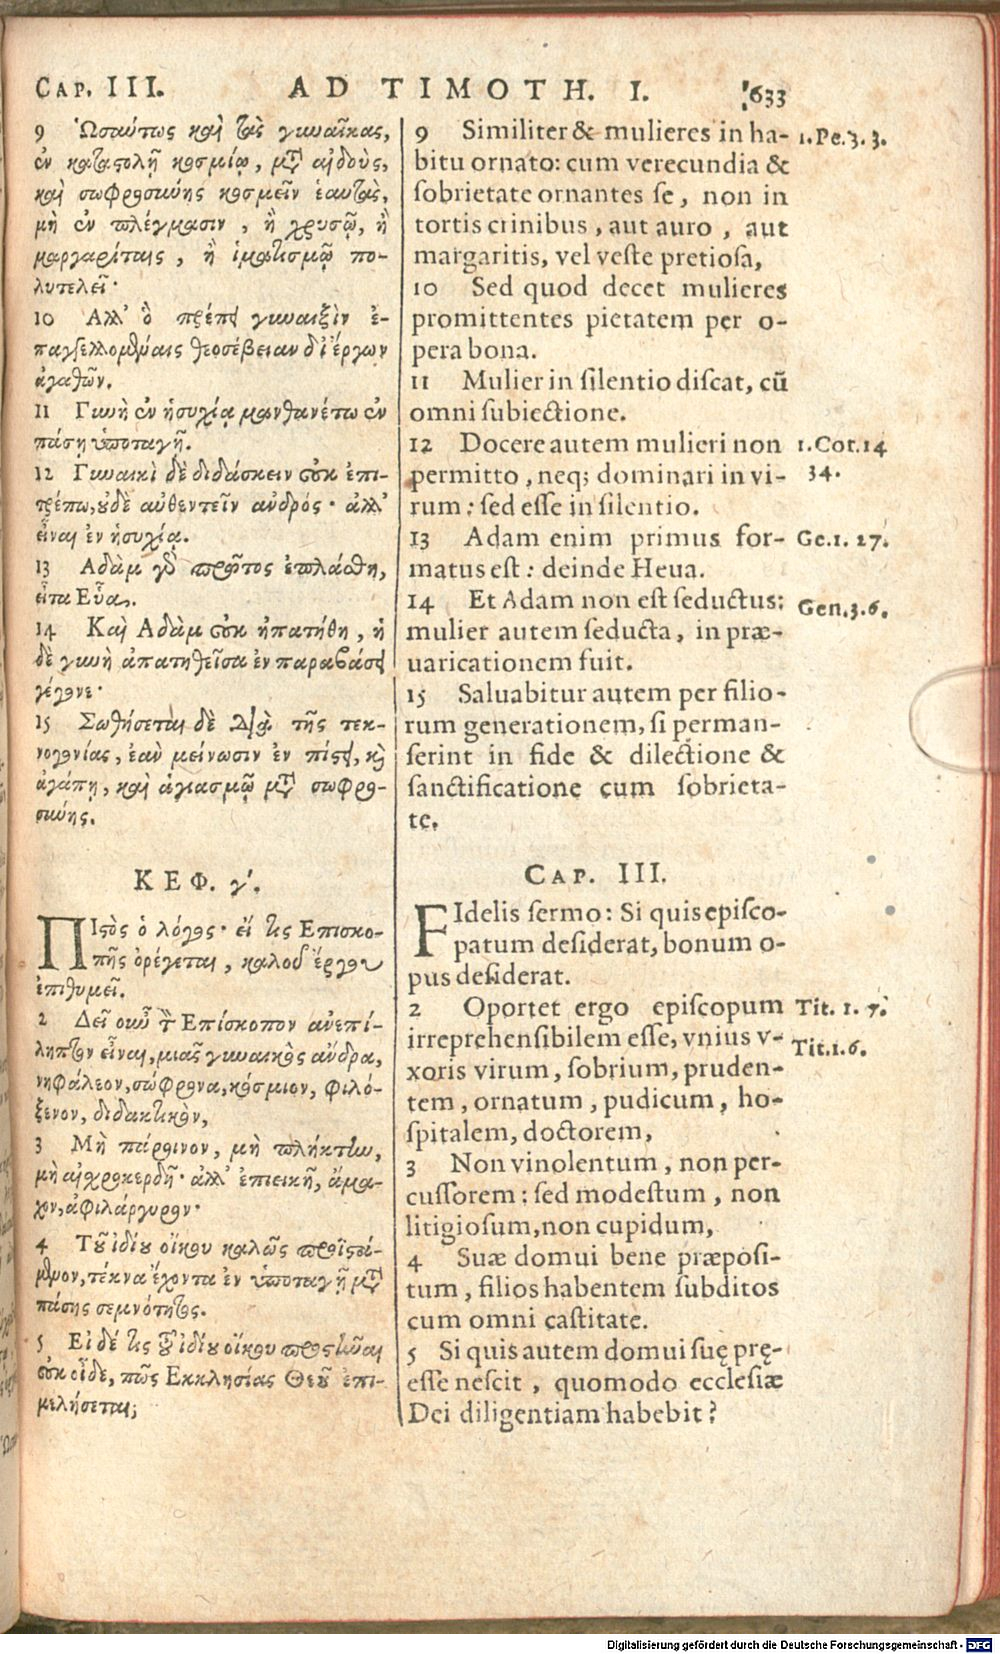 CAP. III. AD TIMOTH. I. 633
9 Ὡσαύτως καὶ τὰς γυναῖκας,
ἐν καταστολῇ κοσμίῳ, μετ' αἰδοῦς,
καὶ σωφροσύνης κοσμεῖν ἑαυτὰς,
μὴ ἐν πλέγμασιν, ἢ χρυσῷ, ἢ
μαργαρίταις, ἢ ἱματισμῷ πο-
λυτελεῖ·
10 Ἀλλ' ὃ πρέπει γυναιξὶν ἐ-
παγγελλομέναις θεοσέβειαν δι' ἔργων
ἀγαθῶν.
11 Γυνὴ ἐν ἡσυχίᾳ μανθανέτω ἐν
πάσῃ ὑποταγῇ.
12 Γυναικὶ δὲ διδάσκειν οὐκ ἐπι-
τρέπω, οὐδὲ αὐθεντεῖν ἀνδρός· ἀλλ'
εἶναι ἐν ἡσυχίᾳ.
13 Ἀδὰμ γὸ πρῶτος ἐπλάσθη,
εἶτα Εὖα.
14 Καὶ Ἀδὰμ οὐκ ἠπατήθη, ἡ
δὲ γυνὴ ἀπατηθεῖσα ἐν παραβάσει
γέγονε·
15 Σωθήσεται δὲ διὰ τῆς τεκ-
νογονίας, ἐὰν μείνωσιν ἐν πίστει, καὶ
ἀγάπῃ, καὶ ἁγιασμῷ μετὰ σωφρο-
σύνης.
ΚΕΦ. γ'.
ΠΙστὸς ὁ λόγος· εἴ τις Ἐπισκο-
πῆς ὀρέγεται, καλοῦ ἔργου
ἐπιθυμεῖ.
2 Δεῖ οὖν τὸν Ἐπίσκοπον ἀνεπί-
ληπτον εἶναι, μιᾶς γυναικὸς ἄνδρα,
νηφάλεον, σώφρονα, κόσμιον, φιλό-
ξενον, διδακτικὸν,
3 Μὴ πάροινον, μὴ πλήκτην,
μὴ αἰσχροκερδῆ· ἀλλ' ἐπιεικῆ, ἄμα-
χον, ἀφιλάργυρον·
4 Τοῦ ἰδίου οἴκου καλῶς προϊστά-
μενον, τέκνα ἔχοντα ἐν ὑποταγῇ μετὰ
πάσης σεμνότητος.
5 Εἰ δέ τις τοῦ ἰδίου οἴκου προστῆναι
οὐκ οἶδε, πῶς Ἐκκλησίας Θεοῦ ἐπι-
μελήσεται;
9 Similiter & mulieres in ha-
bitu ornato: cum verecundia &
sobrietate ornantes se, non in
tortis crinibus, aut auro, aut
margaritis, vel veste pretiosa,
10 Sed quod decet mulieres
promittentes pietatem per o-
pera bona.
11 Mulier in silentio discat, cū
omni subiectione.
12 Docere autem mulieri non
permitto, neq; dominari in vi-
rum: sed esse in silentio.
13 Adam enim primus for-
matus est: deinde Heua.
14 Et Adam non est seductus:
mulier autem seducta, in præ-
uaricationem fuit.
15 Saluabitur autem per filio-
rum generationem, si perman-
serint in fide & dilectione &
sanctificatione cum sobrieta-
te.
CAP. III.
FIdelis sermo: Si quis episco-
patum desiderat, bonum o-
pus desiderat.
2 Oportet ergo episcopum
irreprehensibilem esse, vnius v-
xoris virum, sobrium, pruden-
tem, ornatum, pudicum, ho-
spitalem, doctorem,
3 Non vinolentum, non per-
cussorem: sed modestum, non
litigiosum, non cupidum,
4 Suæ domui bene præposi-
tum, filios habentem subditos
cum omni castitate.
5 Si quis autem domui suę prę-
esse nescit, quomodo ecclesiæ
Dei diligentiam habebit?
1.Pe.3.3.
1.Cor.14
34.
Ge.1. 27.
Gen.3.6.
Tit. 1. 7.
Tit.1.6.
Digitalisierung gefördert durch die Deutsche Forschungsgemeinschaft - DFG